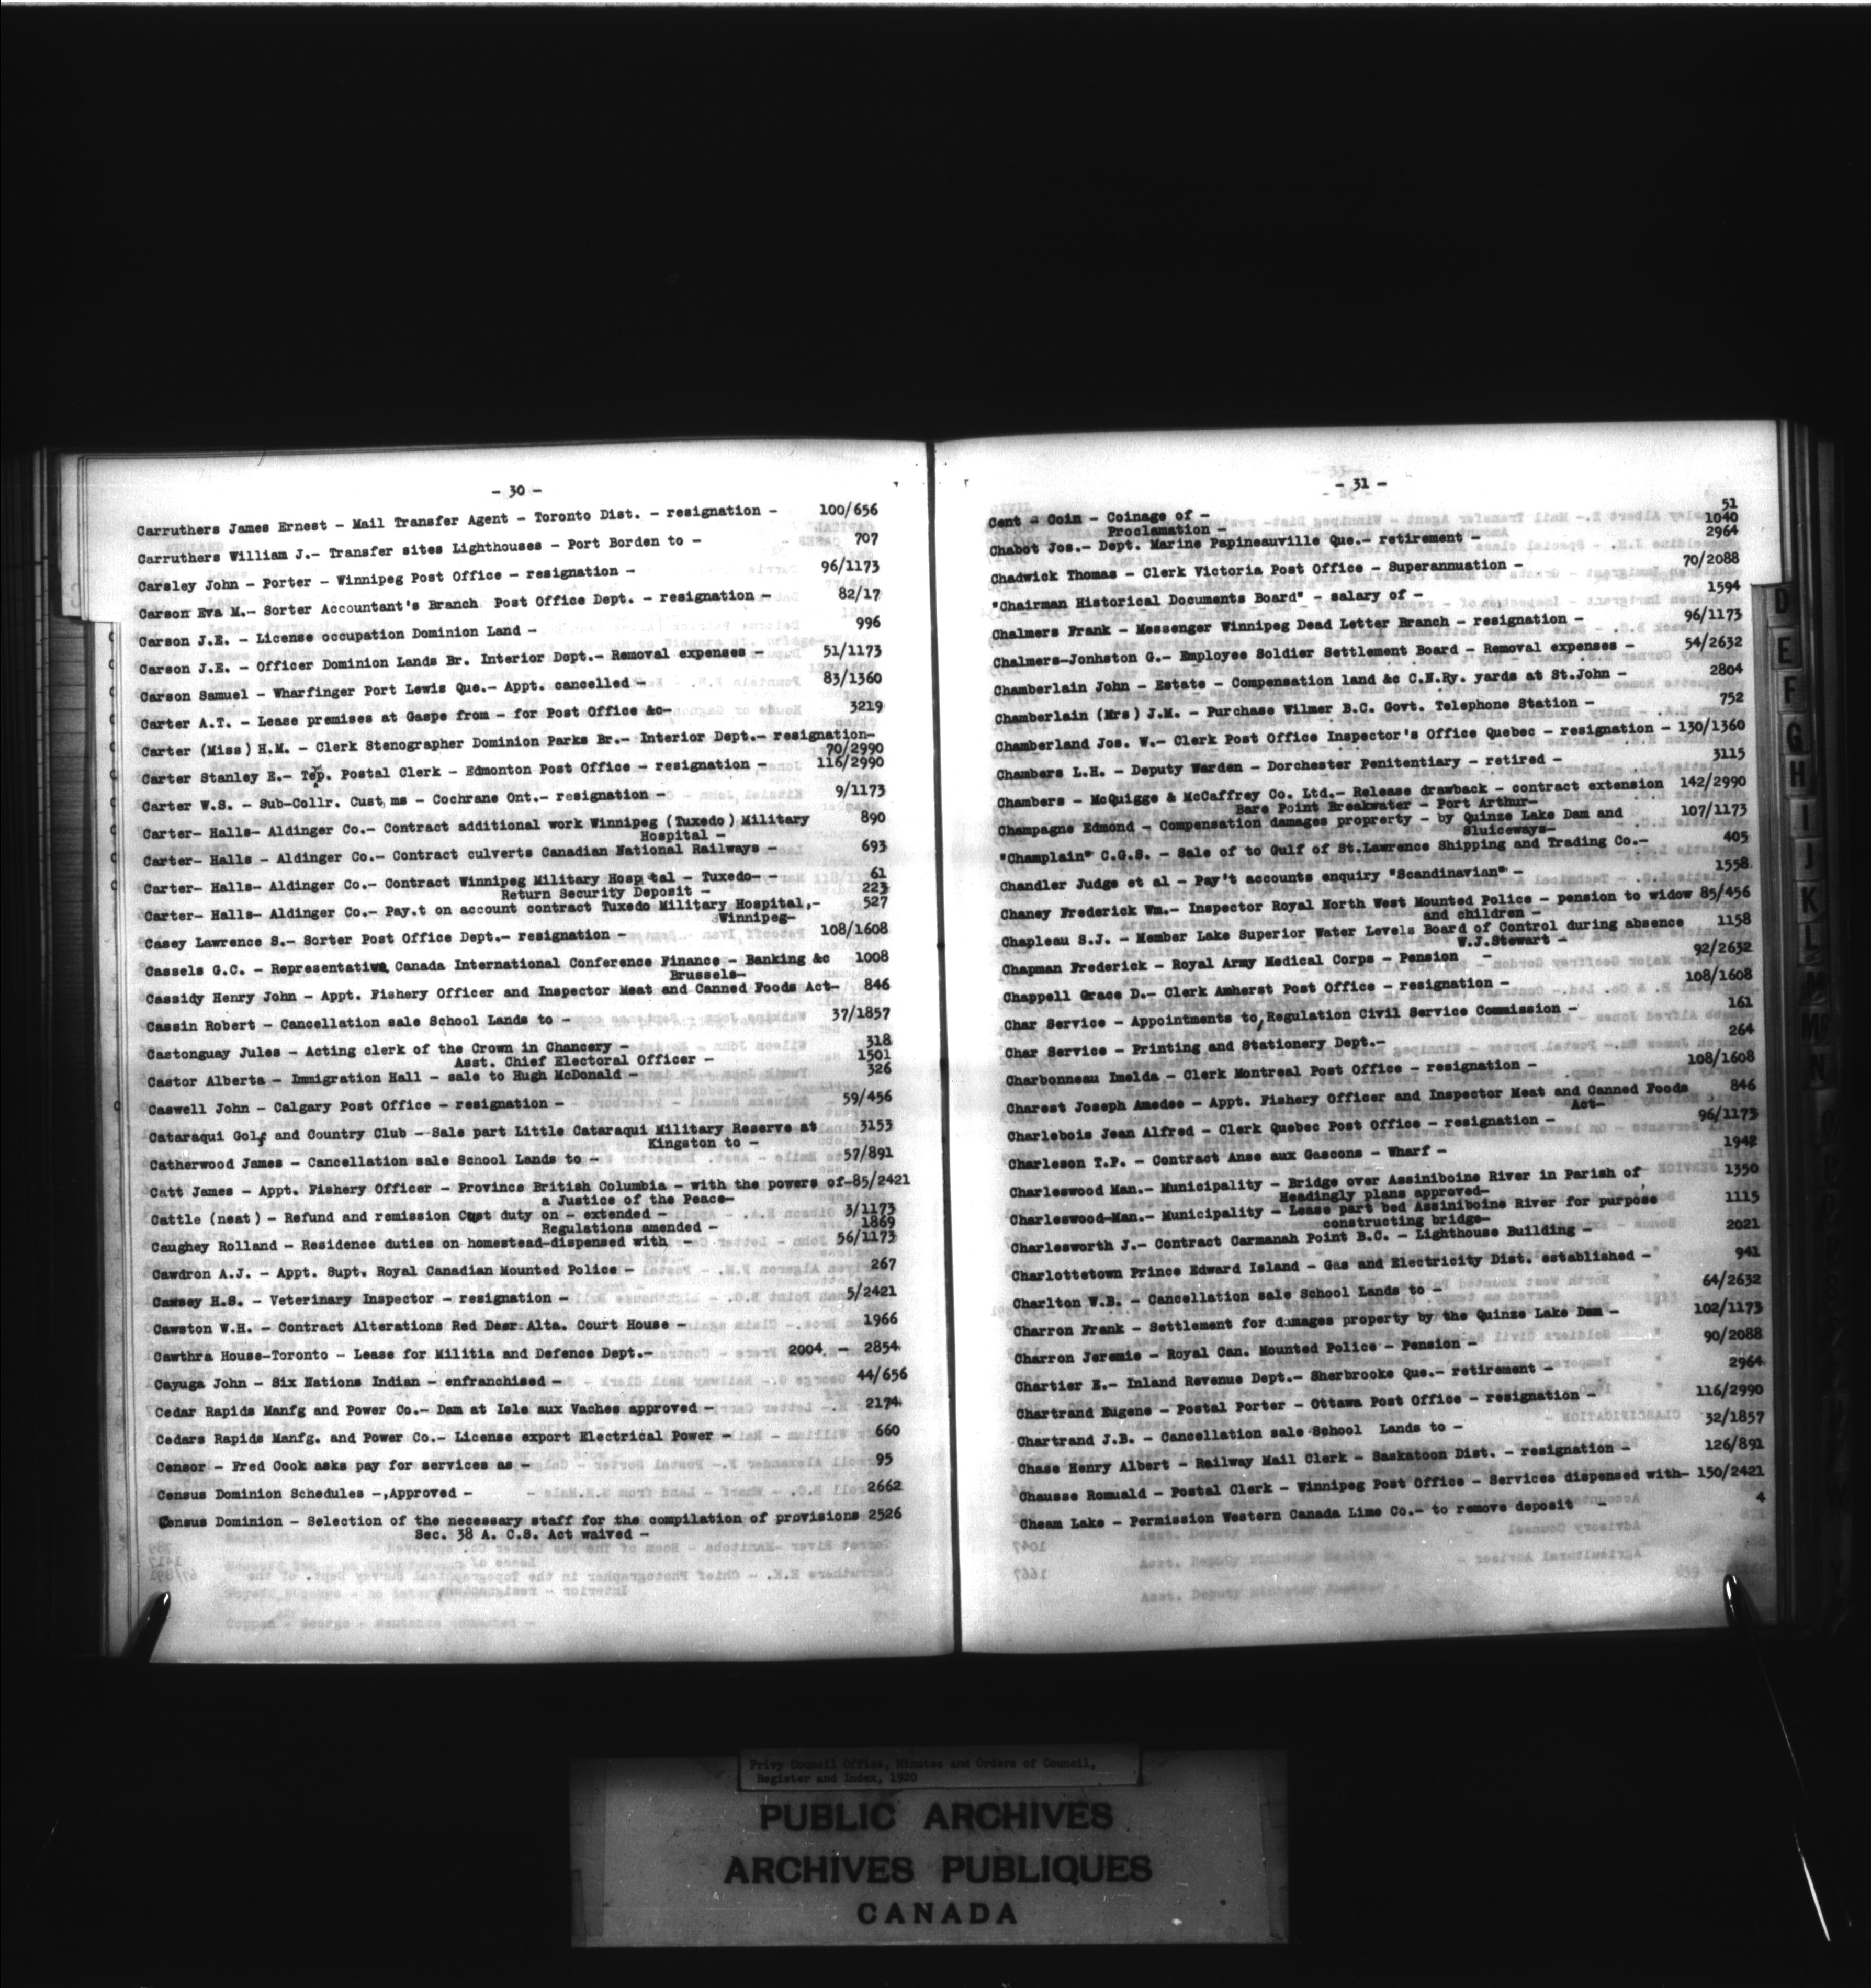 - 30 -
Carruthers James Ernest - Mail Transfer Agent - Toronto Dist. - resignation - 100/656
Carruthers William J.- Transfer sites Lighthouses - Port Borden to - 707
Carsley John - Porter - Winnipeg Post Office - resignation - 96/1173
Carson Eva M.- Sorter Accountant's Branch Post Office Dept. - resignation - 82/17
Carson J.E. - License occupation Dominion Land - 996
Carson J.E. - Officer Dominion Lands Br. Interior Dept.- Removal expenses - 51/1173
Carson Samuel - Wharfinger Port Lewis Que.- Appt. cancelled - 83/1360
Carter A.T. - Lease premises at Gaspe from - for Post Office &c- 3219
Carter (Miss) H.M. - Clerk Stenographer Dominion Parks Br.- Interior Dept.- resignation-
70/2990
Carter Stanley E.- Tep. Postal Clerk - Edmonton Post Office - resignation - 116/2990
Carter W.S. - Sub-Collr. Cust,ms - Cochrane Ont.- resignation - 9/1173
Carter- Halls- Aldinger Co.- Contract additional work Winnipeg (Tuxedo) Military 890
Hospital -
Carter- Halls - Aldinger Co.- Contract culverts Canadian National Railways - 693
Carter- Halls- Aldinger Co.- Contract Winnipeg Military Hospital - Tuxedo- - 61
Return Security Deposit - 223
Carter- Halls- Aldinger Co.- Pay.t on account contract Tuxedo Military Hospital,- 527
Winnipeg-
Casey Lawrence S.- Sorter Post Office Dept.- resignation - 108/1608
Cassels G.C. - Representative Canada International Conference Finance - Banking &c 1008
Brussels-
Cassidy Henry John - Appt. Fishery Officer and Inspector Meat and Canned Foods Act- 846
Cassin Robert - Cancellation sale School Lands to - 37/1857
Castonguay Jules - Acting clerk of the Crown in Chancery - 318
Asst. Chief Electoral Officer - 1501
Castor Alberta - Immigration Hall - sale to Hugh McDonald - 326
Caswell John - Calgary Post Office - resignation - 59/456
Cataraqui Golf and Country Club - Sale part Little Cataraqui Military Reserve at 3153
Kingston to -
Catherwood James - Cancellation sale School Lands to - 57/891
Catt James - Appt. Fishery Officer - Province British Columbia - with the powers of-85/2421
a Justice of the Peace-
Cattle (neat) - Refund and remission Cust duty on - extended - 3/1173
Regulations amended - 1869
Caughey Rolland - Residence duties on homestead-dispensed with - 56/1173
Cawdron A.J. - Appt. Supt. Royal Canadian Mounted Police - 267
Cawsey H.S. - Veterinary Inspector - resignation - 5/2421
Cawston W.H. - Contract Alterations Red Deer Alta. Court House - 1966
Cawthra House-Toronto - Lease for Militia and Defence Dept.- 2004 - 2854
Cayuga John - Six Nations Indian - enfranchised - 44/656
Cedar Rapids Manfg and Power Co.- Dam at Isle aux Vaches approved - 2174
Cedars Rapids Manfg. and Power Co.- License export Electrical Power - 660
Censor - Fred Cook asks pay for services as - 95
Census Dominion Schedules -,Approved - 2662
Census Dominion - Selection of the necessary staff for the compilation of provisions 2526
Sec. 38 A. C.S. Act waived -
- 31 -
Cent - Coin - Coinage of - 51
Proclamation - 1040
Chabot Jos.- Dept. Marine Papineauville Que.- retirement - 2964
Chadwick Thomas - Clerk Victoria Post Office - Superannuation - 70/2088
"Chairman Historical Documents Board" - salary of - 1594
Chalmers Frank - Messenger Winnipeg Dead Letter Branch - resignation - 96/1173
Chalmers-Jonhston G.- Employee Soldier Settlement Board - Removal expenses - 54/2632
Chamberlain John - Estate - Compensation land &c C.N.Ry. yards at St.John - 2804
Chamberlain (Mrs) J.M. - Purchase Wilmer B.C. Govt. Telephone Station - 752
Chamberland Jos. W.- Clerk Post Office Inspector's Office Quebec - resignation - 130/1360
Chambers L.H. - Deputy Warden - Dorchester Penitentiary - retired - 3115
Chambers - McQuigge & McCaffrey Co. Ltd.- Release drawback - contract extension 142/2990
Bare Point Breakwater - Port Arthur-
Champagne Edmond - Compensation damages proprerty - by Quinze Lake Dam and 107/1173
Sluiceways-
"Champlain" C.G.S. - Sale of to Gulf of St.Lawrence Shipping and Trading Co.- 405
Chandler Judge et al - Pay't accounts enquiry "Scandinavian" - 1558
Chaney Frederick Wm.- Inspector Royal North West Mounted Police - pension to widow 85/456
and children -
Chapleau S.J. - Member Lake Superior Water Levels Board of Control during absence 1158
W.J.Stewart -
Chapman Frederick - Royal Army Medical Corps - Pension - 92/2632
Chappell Grace D.- Clerk Amherst Post Office - resignation - 108/1608
Char Service - Appointments to,Regulation Civil Service Commission - 161
Char Service - Printing and Stationery Dept.- 264
Charbonneau Imelda - Clerk Montreal Post Office - resignation - 108/1608
Charest Joseph Amedee - Appt. Fishery Officer and Inspector Meat and Canned Foods 846
Act-
Charlebois Jean Alfred - Clerk Quebec Post Office - resignation - 96/1173
Charleson T.P. - Contract Anse aux Gascons - Wharf - 1942
Charleswood Man.- Municipality - Bridge over Assiniboine River in Parish of 1350
Headingly plans approved-
Charleswood-Man.- Municipality - Lease part bed Assiniboine River for purpose 1115
constructing bridge-
Charlesworth J.- Contract Carmanah Point B.C. - Lighthouse Building - 2021
Charlottetown Prince Edward Island - Gas and Electricity Dist. established - 941
Charlton W.B. - Cancellation sale School Lands to - 64/2632
Charron Frank - Settlement for damages property by the Quinze Lake Dam - 102/1173
Charron Jeremie - Royal Can. Mounted Police - Pension - 90/2088
Chartier E.- Inland Revenue Dept.- Sherbrooke Que.- retirement - 2964
Chartrand Eugene - Postal Porter - Ottawa Post Office - resignation - 116/2990
Chartrand J.B. - Cancellation sale School Lands to - 32/1857
Chase Henry Albert - Railway Mail Clerk - Saskatoon Dist. - resignation - 126/891
Chausse Romuald - Postal Clerk - Winnipeg Post Office - Services dispensed with- 150/2421
Cheam Lake - Permission Western Canada Lime Co.- to remove deposit - 4
D
E
F
G
H
I
J
K
L
M
N
Privy Council Office, Minutes and Orders of Council,
Register and Index, 1920
PUBLIC ARCHIVES
ARCHIVES PUBLIQUES
CANADA